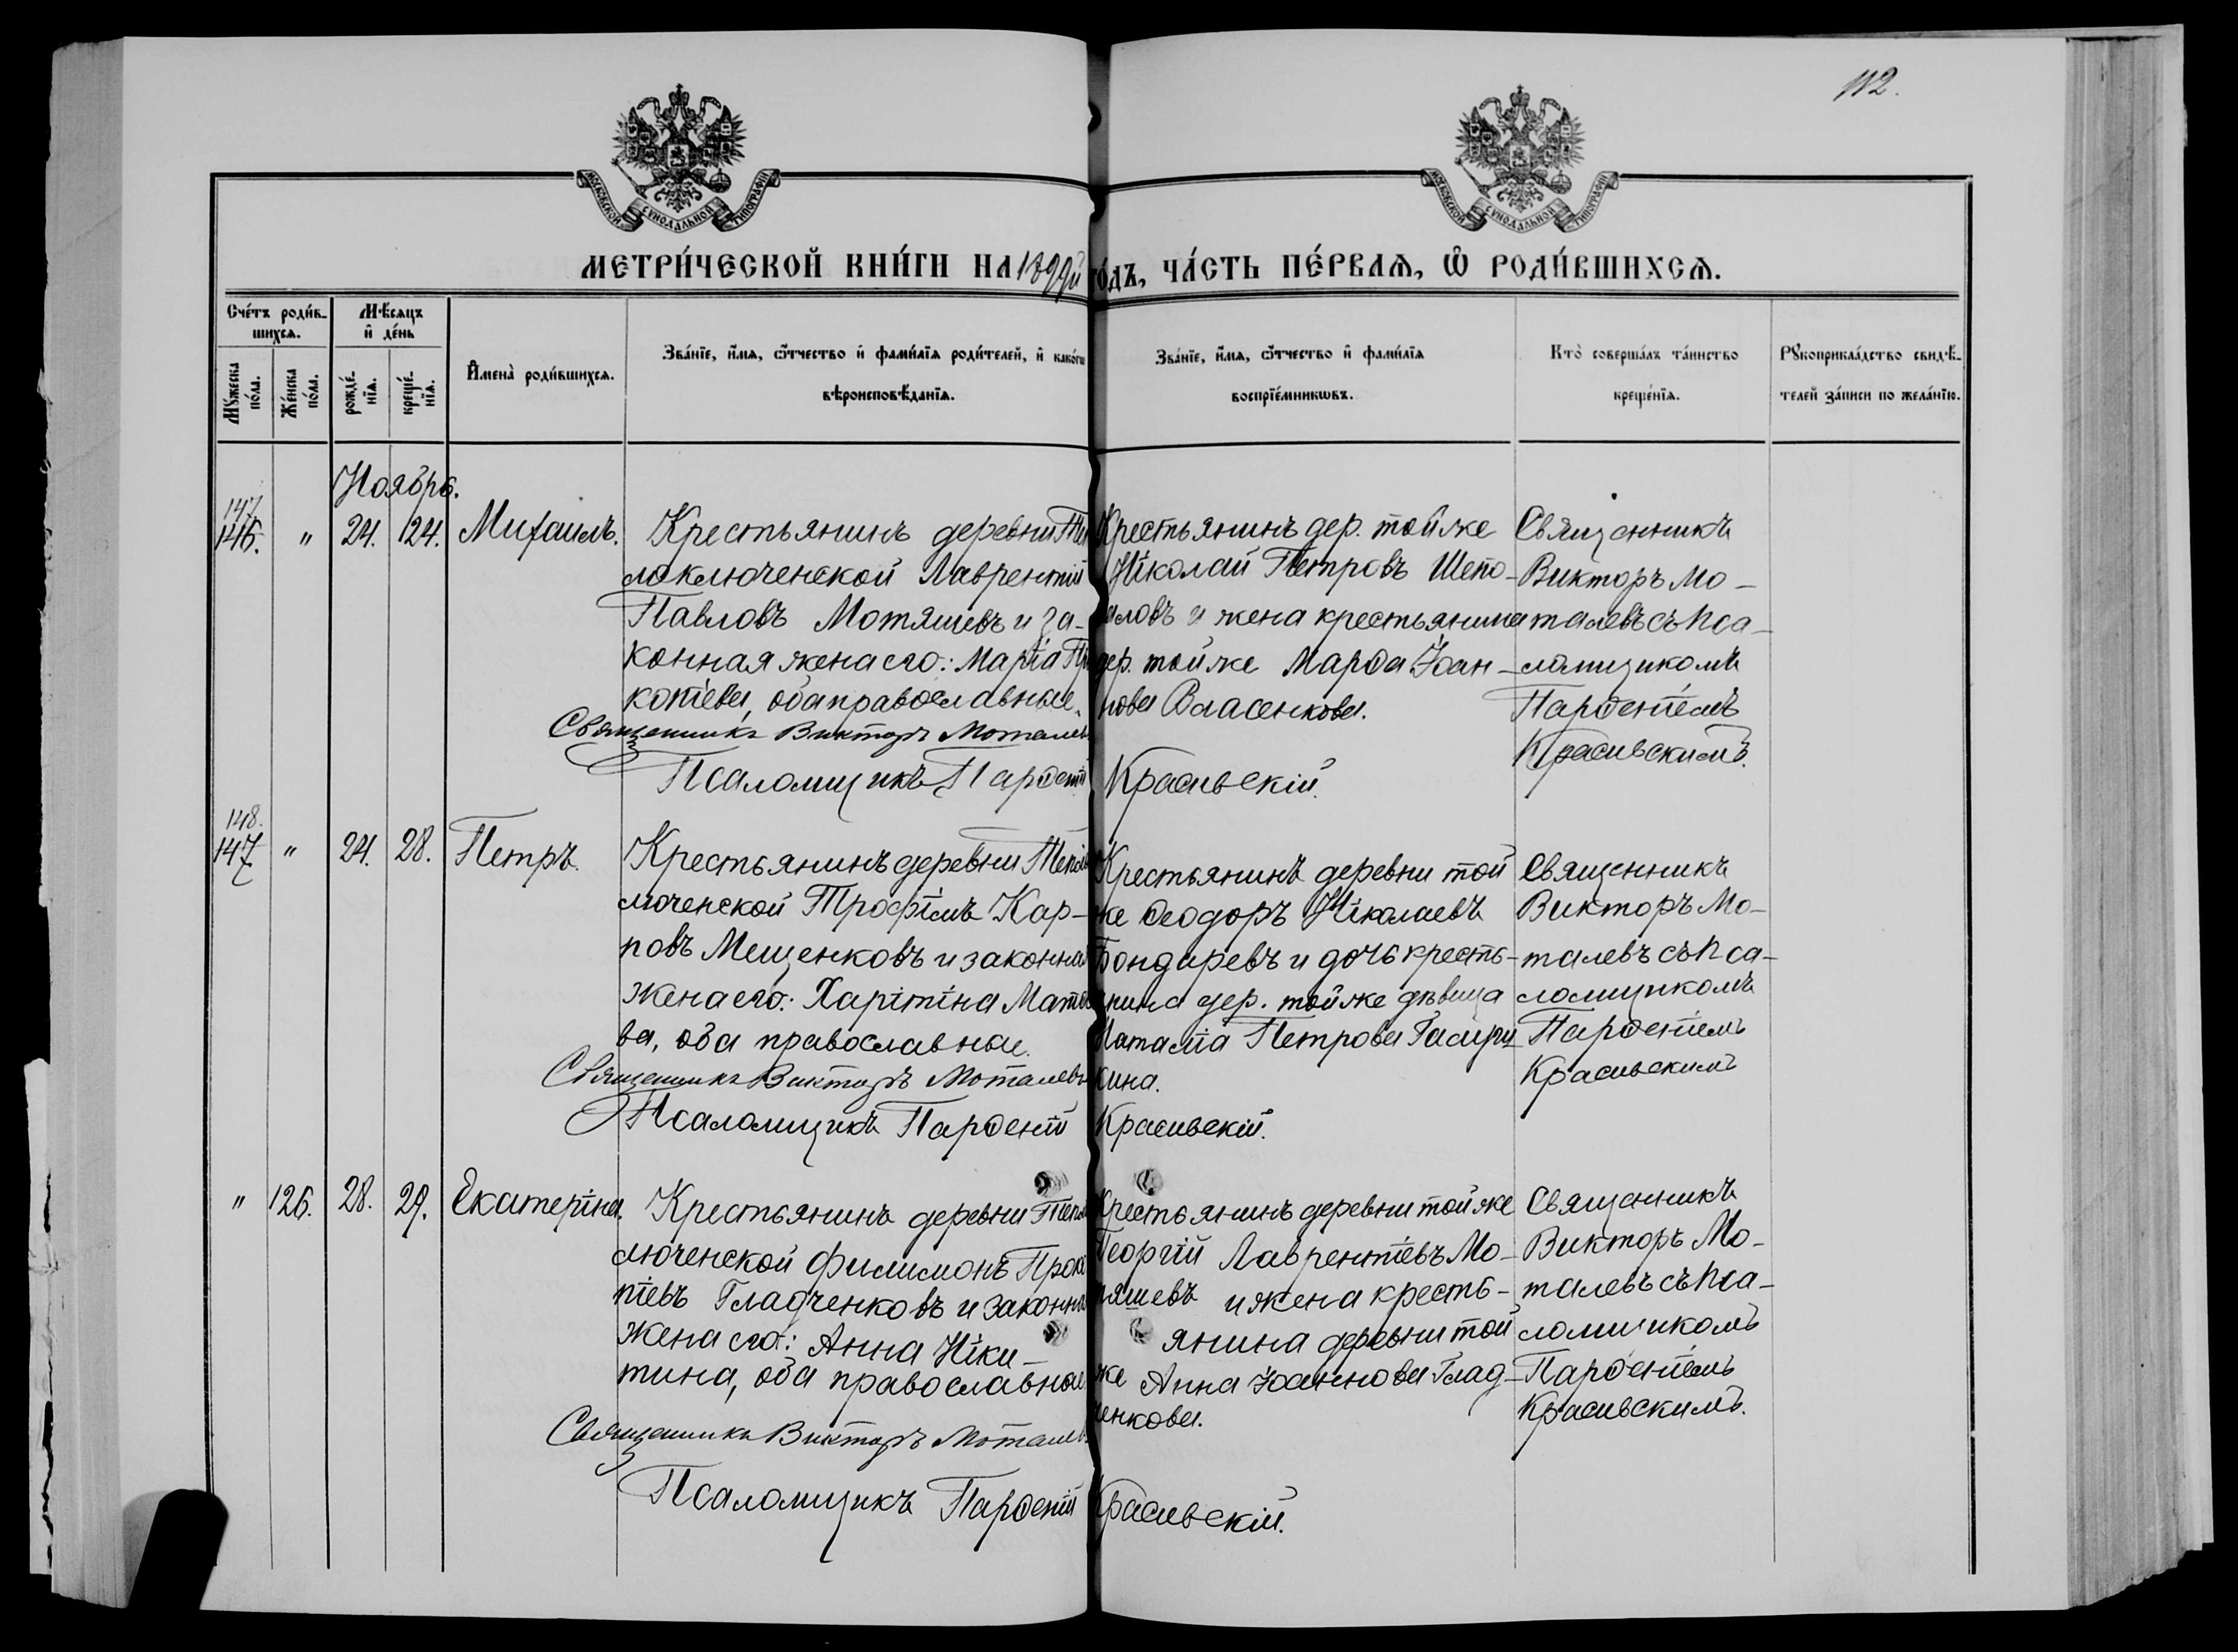 112.
МОСКОВСКОЙ СѴНОДАЛЬНОЙ ТИПОГРАФІИ
МОСКОВСКОЙ СѴНОДАЛЬНОЙ ТИПОГРАФІИ
МЕТРИ́ЧЕСКОЙ КНИ́ГИ НА 1899й го́дъ, ЧА́СТЬ ПЕ́РВАѦ, Ѡ РОДИ́ВШИХСѦ.
Сче́тъ роди́в-
шихсѧ.
Мꙋ́жеска
по́ла.
Же́нска
по́ла.
Мѣ́сѧцъ
и де́нь
рожде́-
нїѧ.
креще́-
нїѧ.
Имена̀ роди́вшихсѧ.
Зва́нїе, и́мѧ, ѻ́тчество и фами́лїѧ роди́телей, и како́гѡ
вѣроисповѣ́данїѧ.
Зва́нїе, и́мѧ, ѻ́тчество и фами́лїѧ
воспрїе́мникѡвъ.
Кто̀ соверша́лъ та́инство
креще́нїѧ.
Рꙋкоприкла́дство свидѣ́-
телей за́писи по жела́нїю.
Ноябрь.
147
146. " 24. 24. Михаилъ.
Крестьянинъ деревни Теп
лоключенской Лаврентій
Павловъ Мотяшевъ и за-
конная жена его: Марія Про
копіева, оба православные.
Священникъ Викторъ Моталевъ
Псаломщикъ Парѳеній Красивскій.
Крестьянинъ дер. той же
Ніколай Петровъ Шепо-
ловъ и жена крестьянина
дер. той же Марѳа Іоан-
нова Власенкова.
Священникъ
Викторъ Мо-
талевъ съ пса-
ломщикомъ
Парѳеніемъ
Красивскимъ.
148.
147 " 24. 28. Петръ.
Крестьянинъ деревни Теплок
люченской Трофімъ Кар-
повъ Мещенковъ и законная
жена его: Харітіна Матѳе
ва, оба православные.
Священникъ Викторъ Моталевъ
Псаломщикъ Парѳеній Красивскій.
Крестьянинъ деревни той
же Ѳеодоръ Ніколаевъ
Бондаревъ и дочь кресть-
янина дер. той же дѣвица
Наталія Петрова
кина.
Священникъ
Викторъ Мо-
талевъ съ пса-
ломщикомъ
Парѳеніемъ
Красивскимъ
" 126. 28. 29. Екатеріна.
Крестьянинъ деревни Теплок
люченской Филимонъ Проко
піевъ Гладченковъ и законная
жена его: Анна Ніки-
тина, оба православные
Священникъ Викторъ Моталевъ
Псаломщикъ Парѳеній Красивскій.
Крестьянинъ деревни той же
Георгій Лаврентіевъ Мо-
тяшевъ и жена кресть-
янина деревни той
же Анна Іоаннова Глад-
ченкова.
Священникъ
Викторъ Мо-
талевъ съ пса-
ломщикомъ
Парѳеніемъ
Красивскимъ.